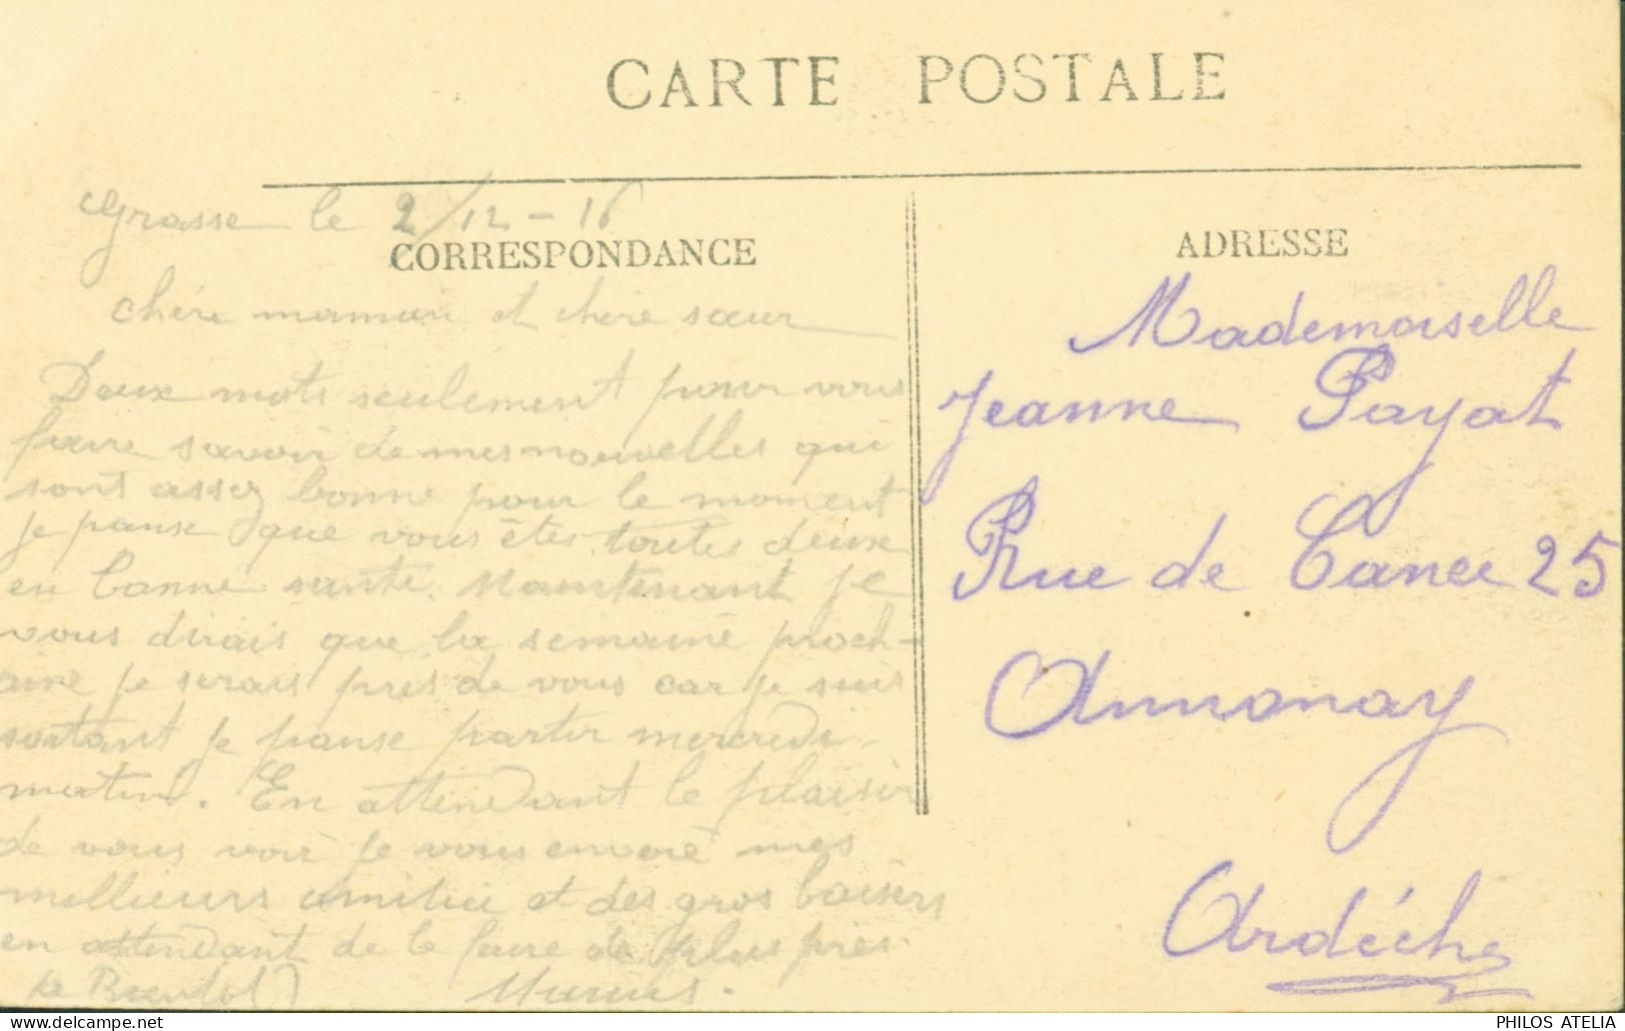 CARTE POSTALE
Grasse le 2/12-16
CORRESPONDANCE
chère maman et chère sœur
Deux mots seulement pour vous
faire savoir de mes nouvelles qui
sont assez bonne pour le moment
je panse que vous êtes toutes deux
en bonne santé. Maintenant je
vous dirais que la semaine proch-
aine je serais près de vous car je suis
sortant je panse partir mercredi
matin. En attendant le plaisir
de vous voir je vous envoie mes
meilleurs amitiée et des gros baisers
en attendant de le faire de plus près.
Marius.
ADRESSE
Mademoiselle
Jeanne Payat
Rue de Cance 25
Annonay
Ardèche
PHILOS ATELIA
www.delcampe.net